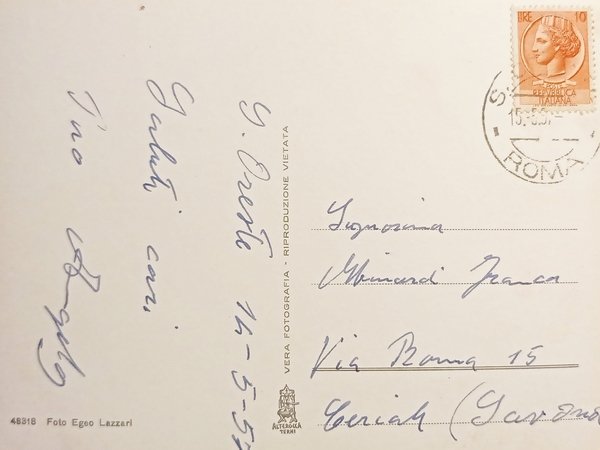 LIRE 10
POSTE
REPVBBLICA
ITALIANA
S.
15.-5.5
ROMA
S. Oreste 14-5-57
Saluti cari
Tino Angelo
VERA FOTOGRAFIA - RIPRODUZIONE VIETATA
Signorina
Minardi Franca
Via Roma 15
Ceriale (Savona
ALTEROCCA
TERNI
48318 Foto Egeo Lazzari